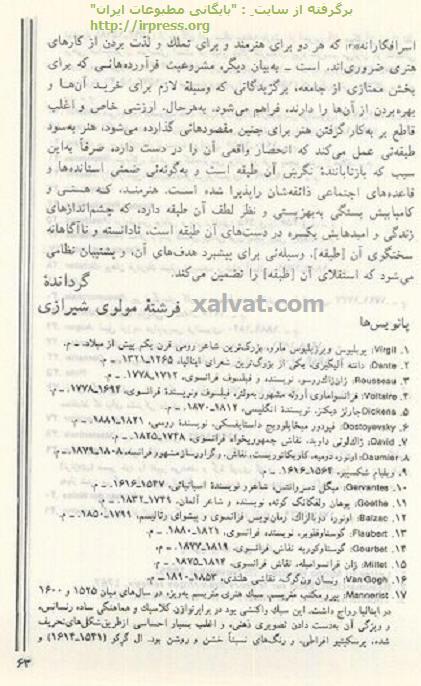 برگرفته از سایت_ : "بایگانی مطبوعات ایران"
http://irpress.org
اسرافکارانه[۳۵] که هر دو برای هنرمند و برای تملك و لذّت بردن از کارهای
هنری ضروری‌اند. است ــ به‌بیان دیگر، مشروعیت فرآورده‌هائی که برای
بخش ممتازی از جامعه، برگزیدگانی که وسیلهٔ لازم برای خرید آن‌ها و
بهره‌بردن از آن‌ها را دارند، فراهم می‌شود. به‌هرحال، ارزشی خاص و اغلب
قاطع بر به‌کار گرفتن هنر برای چنین مقصودهائی گذارده می‌شود، هنر به‌سود
طبقه‌ئی عمل می‌کند که انحصار واقعی آن را در دست دارد، صرفاً به‌این
سبب که بازتابانندهٔ نگرش آن طبقه است و به‌گونه‌ئی ضمنی استانده‌ها و
قاعده‌های اجتماعی ذائقه‌شان را پذیرا شده است. هنرمند، که هستی و
کامیابیش بستگی به‌بهزیستی و نظر لطف آن طبقه دارد، که چشم‌اندازهای
زندگی و امیدهایش یکسره در دست‌های آن طبقه است، نادانسته و ناآگاهانه
سخنگوی آن [طبقه]، وسیله‌ئی برای پیشبرد هدف‌های آن، و پشتیبان نظامی
می‌شود که استقلای آن [طبقه] را تضمین می‌کند.
گردانندهٔ
فرشتهٔ مولوی شیرازی
xalvat.com
پانویس‌ها
۱. Virgil: پوبلیوس ویرژیلیوس مارو، بزرگ‌ترین شاعر رومی قرن یکم پیش از میلاد. ــ م.
۲. Dante: دانته آلیگیری، یکی از بزرگ‌ترین شعرای ایتالیا، ۱۲۶۵ـ۱۳۲۱. ــ م.
۳. Rousseau: ژان‌ژاك‌روسو، نویسنده و فیلسوف فرانسوی، ۱۷۱۲ـ۱۷۷۸. ــ م.
۴. Voltaire: فرانسواماری آروئه مشهور به‌ولتر، فیلسوف ونویسندهٔ فرانسوی، ۱۶۹۴ـ۱۷۷۸. ــ م.
۵. Dickens: چارلز دیکنز، نویسندهٔ انگلیسی، ۱۸۱۲ـ۱۸۷۰. ــ م.
۶. Dostoyevsky: فیودور میخایلوویچ داستایفسکی، نویسندهٔ روسی، ۱۸۲۱ـ۱۸۸۱. ــ م.
۷. David: ژاك‌لوئی داوید، نقاش جمهوریخواه فرانسوی، ۱۷۴۸ـ۱۸۲۵. ــ م.
۸. Daumier: اونوره دومیه، کاریکاتوریست، نقاش، و گراورساز مشهور فرانسه، ۱۸۰۸ـ۱۸۷۹. ــ م.
۹. ویلیام شکسپیر، ۱۵۶۴ـ۱۶۱۶. ــ م.
۱۰. Cervantes: میگل دسروانتس، شاعر و نویسندهٔ اسپانیائی، ۱۵۴۷ـ۱۶۱۶. ــ م.
۱۱. Goethe: یوهان ولفگانگ گوته، نویسنده و شاعر آلمان، ۱۷۴۹ـ۱۸۳۲. ــ م.
۱۲. Balzac: اونوره دوبالزاك، رمان‌نویس فرانسوی و پیشوای رئالیسم، ۱۷۹۹ـ۱۸۵۰. ــ م.
۱۳. Flaubert: گوستاو فلوبر، نویسنده فرانسوی، ۱۸۲۱ـ۱۸۸۰. ــ م.
۱۴. Courbet: گوستاو کوربه نقاش فرانسوی، ۱۸۱۹ـ۱۸۷۷. ــ م.
۱۵. Millet: ژان فرانسوامیله، نقاش فرانسوی، ۱۸۱۴ـ۱۸۷۵. ــ م.
۱۶. Van Gogh: ونسان ون‌گوگ، نقاش هلندی، ۱۸۵۳ـ۱۸۹۰. ــ م.
۱۷. Mannerist: پیرو مکتب منریسم. سبك هنری منریسم به‌ویژه در سال‌های میان ۱۵۲۵ و ۱۶۰۰
در ایتالیا رواج داشت. این سبك واکنشی بود در برابر توازن کلاسیك و هماهنگی ساده رنسانس،
و ویژگی آن به‌دست دادن تصویری ذهنی، و اغلب بسیار احساسی از طریق شکل‌های تحریف
شده، پرسپکتیو افراطی، و رنگ‌های نسبتاً خشن و روشن بود. ال گرکو (۱۵۴۱ـ۱۶۱۴) و
۶۳